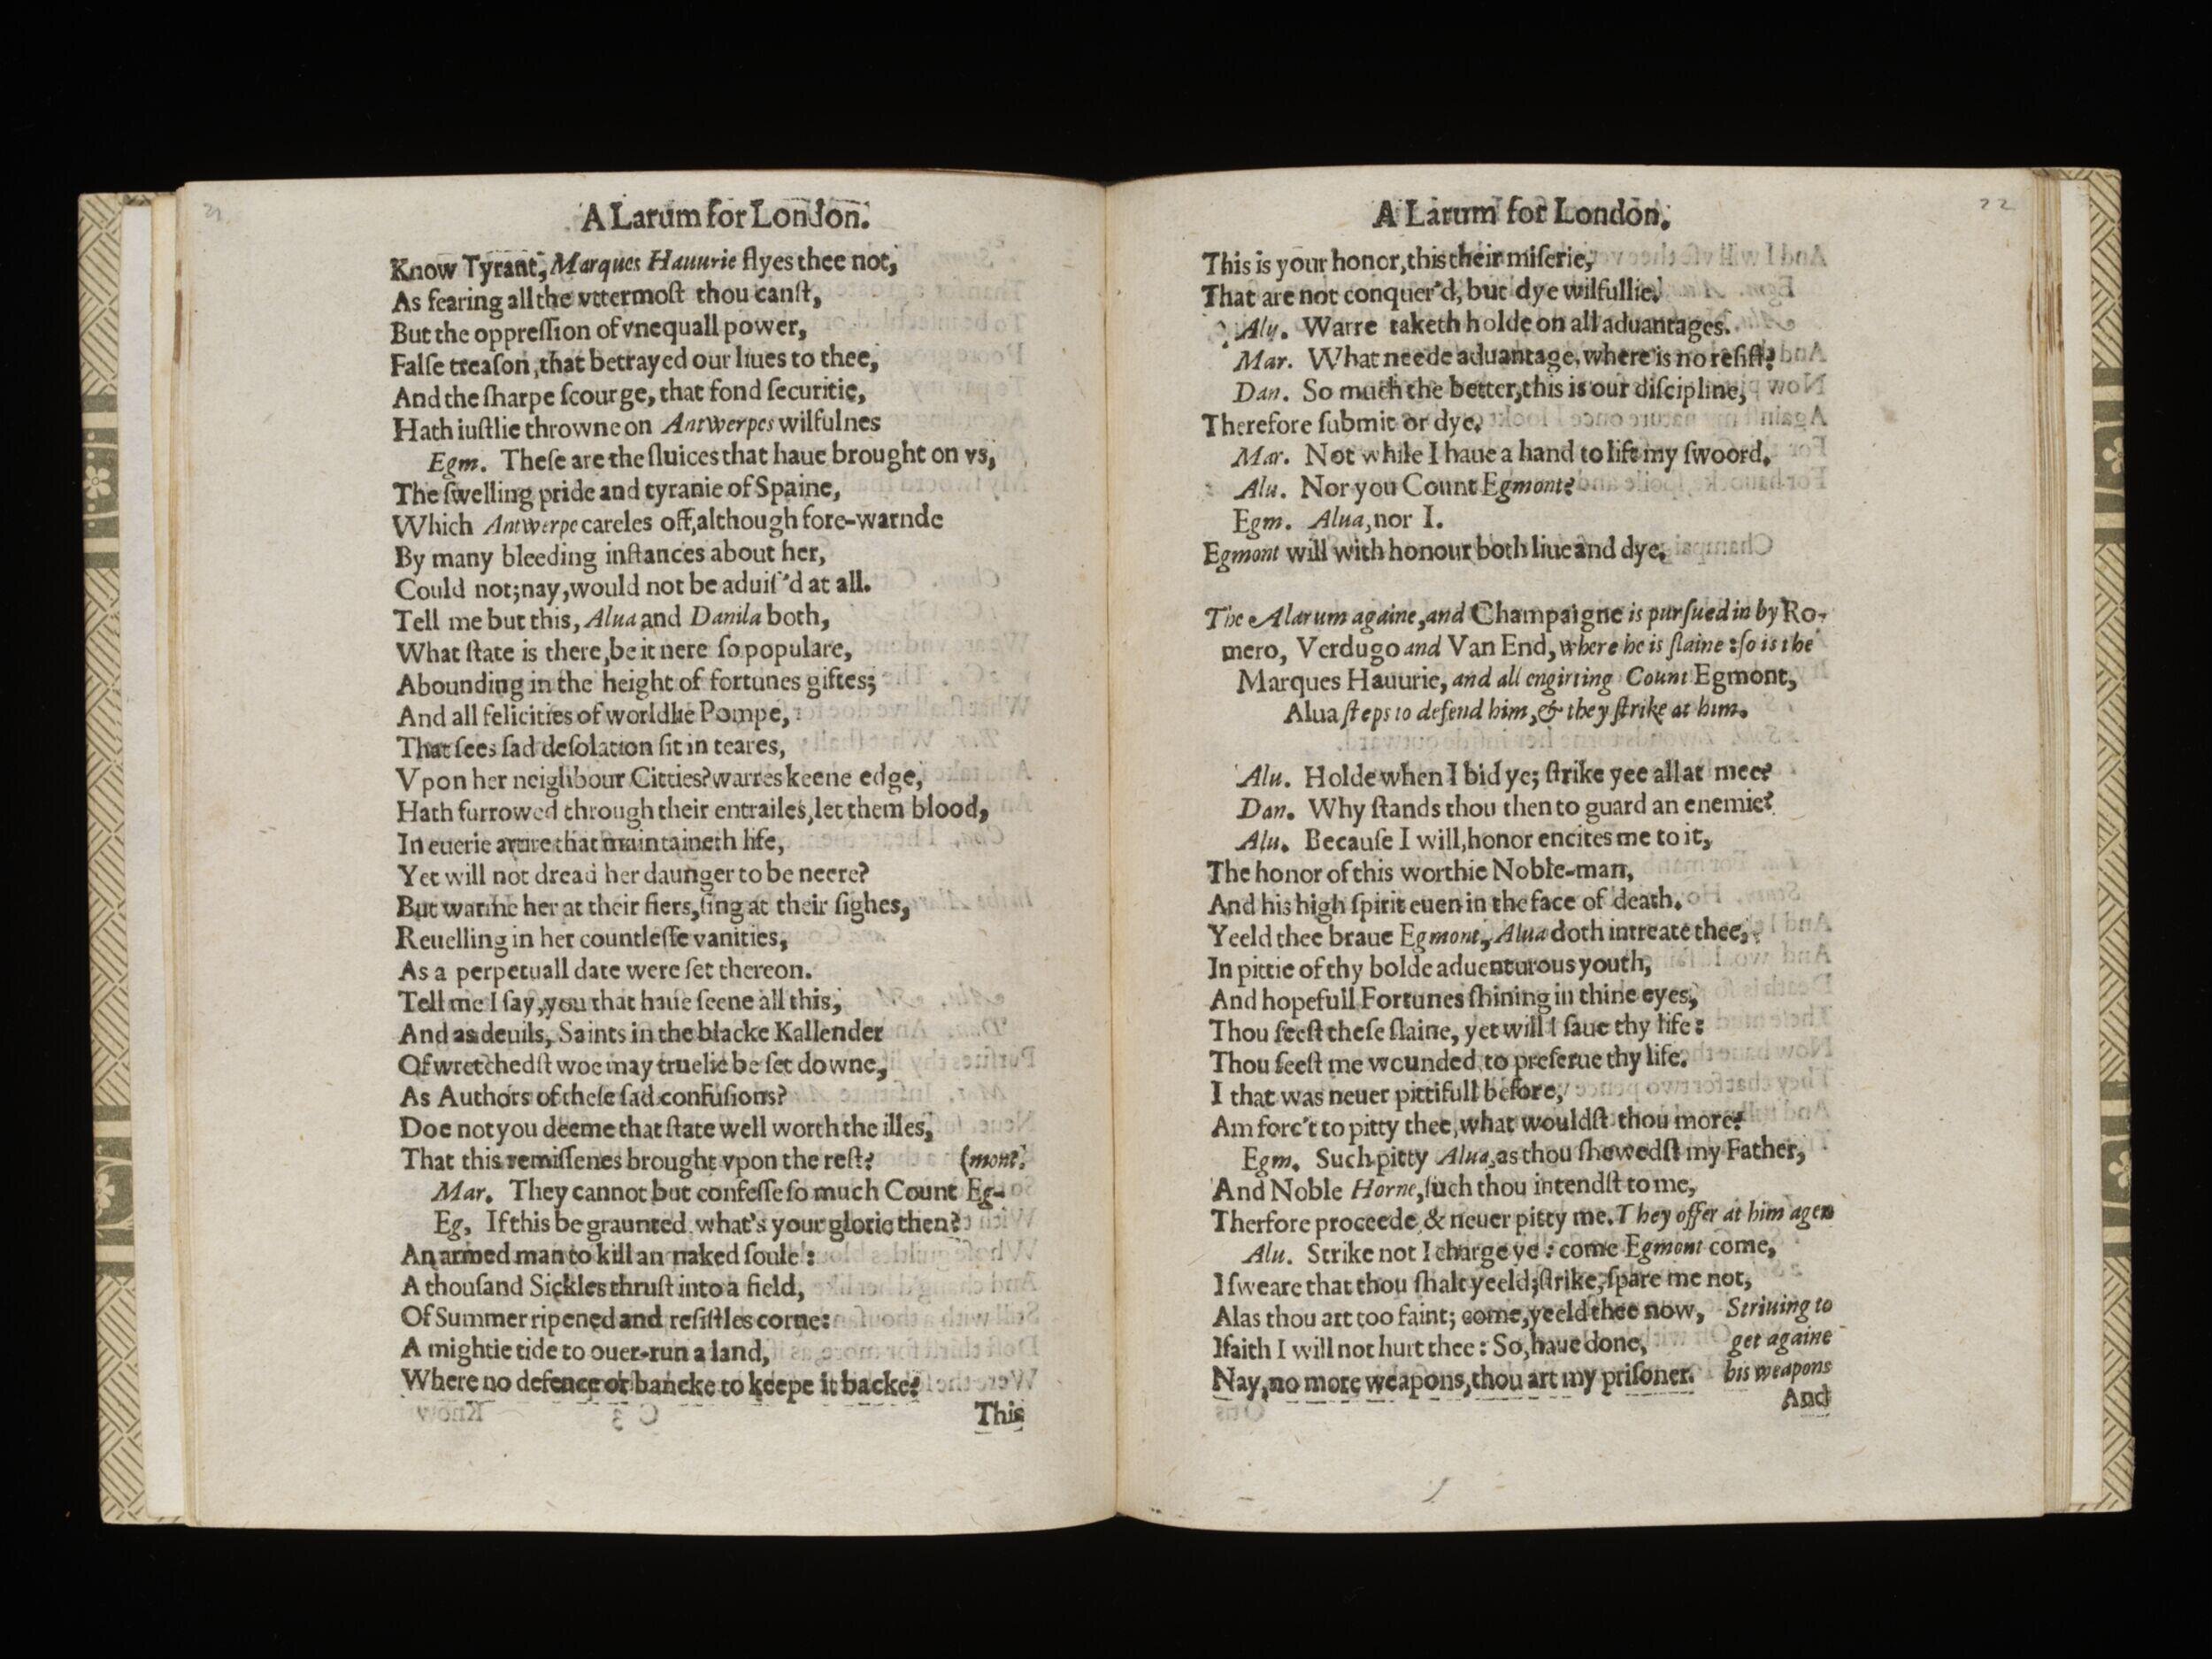 21
A Larum for London.
Know Tyrant, Marques Hauurie flyes thee not,
As fearing all the vttermoſt thou canſt,
But the oppreſſion of vnequall power,
Falſe treaſon, that betrayed our liues to thee,
And the ſharpe ſcourge, that fond ſecuritie,
Hath iuſtlie throwne on Antwerpes wilfulnes
Egm. Theſe are the ſluices that haue brought on vs,
The ſwelling pride and tyranie of Spaine,
Which Antwerpe careles off, although fore-warnde
By many bleeding inſtances about her,
Could not; nay, would not be aduiſ'd at all.
Tell me but this, Alua and Danila both,
What ſtate is there, be it nere ſo populare,
Abounding in the height of fortunes giftes;
And all felicities of worldlie Pompe,
That ſees ſad deſolation ſit in teares,
Vpon her neighbour Citties? warres keene edge,
Hath furrowed through their entrailes, let them blood,
In euerie artire that maintaineth life,
Yet will not dread her daunger to be neere?
But warme her at their fiers, ſing at their ſighes,
Reuelling in her countleſſe vanities,
As a perpetuall date were ſet thereon.
Tell me I ſay, you that haue ſeene all this,
And as deuils, Saints in the blacke Kallender
Of wretchedſt woe may truelie be ſet downe,
As Authors of theſe ſad confuſions?
Doe not you deeme that ſtate well worth the illes,
That this remiſſenes brought vpon the reſt? (mont.
Mar. They cannot but confeſſe ſo much Count Eg-
Eg. If this be graunted what's your glorie then?
An armed man to kill an naked ſoule:
A thouſand Sickles thruſt into a field,
Of Summer ripened and reſiſtles corne:
A mightie tide to ouer-run a land,
Where no defence or bancke to keepe it backe?
This
22
A Larum for London.
This is your honor, this their miſerie,
That are not conquer'd, but dye wilfullie.
Alu. Warre taketh holde on all aduantages.
Mar. What neede aduantage, where is no reſiſt?
Dan. So much the better, this is our diſcipline,
Therefore ſubmit or dye.
Mar. Not while I haue a hand to lift my ſwoord.
Alu. Nor you Count Egmont?
Egm. Alua, nor I.
Egmont will with honour both liue and dye.
The Alarum againe, and Champaigne is purſued in by Ro-
mero, Verdugo and Van End, where he is ſlaine: ſo is the
Marques Hauurie, and all engirting Count Egmont,
Alua ſteps to defend him, & they ſtrike at him.
Alu. Holde when I bid ye; ſtrike yee all at mee?
Dan. Why ſtands thou then to guard an enemie?
Alu. Becauſe I will, honor encites me to it,
The honor of this worthie Noble-man,
And his high ſpirit euen in the face of death.
Yeeld thee braue Egmont, Alua doth intreate thee,
In pittie of thy bolde aduenturous youth,
And hopefull Fortunes ſhining in thine eyes,
Thou ſeeſt theſe ſlaine, yet will I ſaue thy life:
Thou ſeeſt me wounded to preſerue thy life.
I that was neuer pittifull before,
Am forc't to pitty thee, what wouldſt thou more?
Egm. Such pitty Alua, as thou ſhowedſt my Father,
And Noble Horne, ſuch thou intendſt to me,
Therfore proceede & neuer pitty me. They offer at him agen
Alu. Strike not I charge ye: come Egmont come,
I ſweare that thou ſhalt yeeld; ſtrike, ſpare me not,
Alas thou art too faint; come, yeeld thee now, Striuing to
Ifaith I will not hurt thee: So, haue done, get againe
Nay, no more weapons, thou art my priſoner. his weapons
And